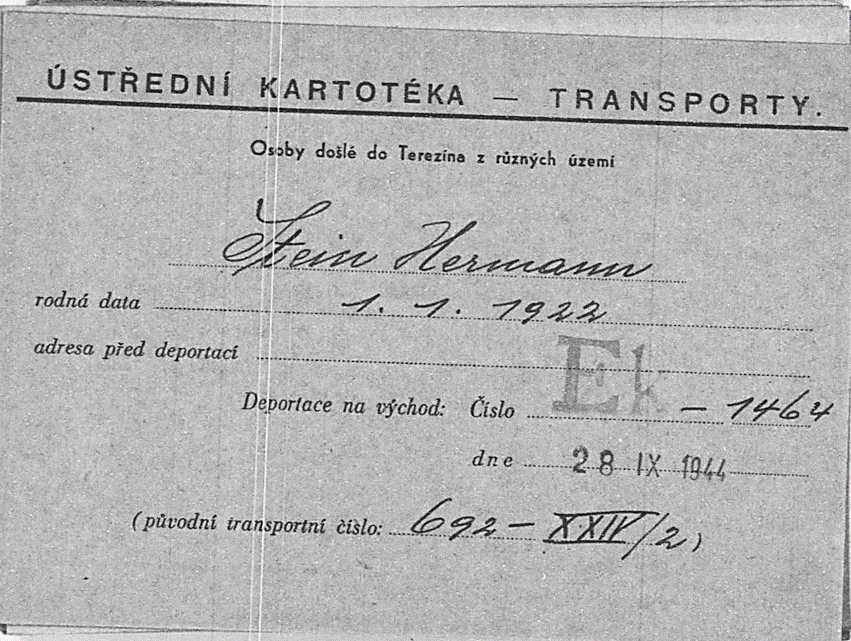 ÚSTŘEDNÍ KARTOTÉKA — TRANSPORTY.
Osoby došlé do Terezína z různých území
Stein Hermann
rodná data 1. 1. 1922
adresa před deportací
Deportace na východ: Číslo Ek - 1464
dne 28 IX 1944
(původní transportní číslo: 692 - XXIV/2)